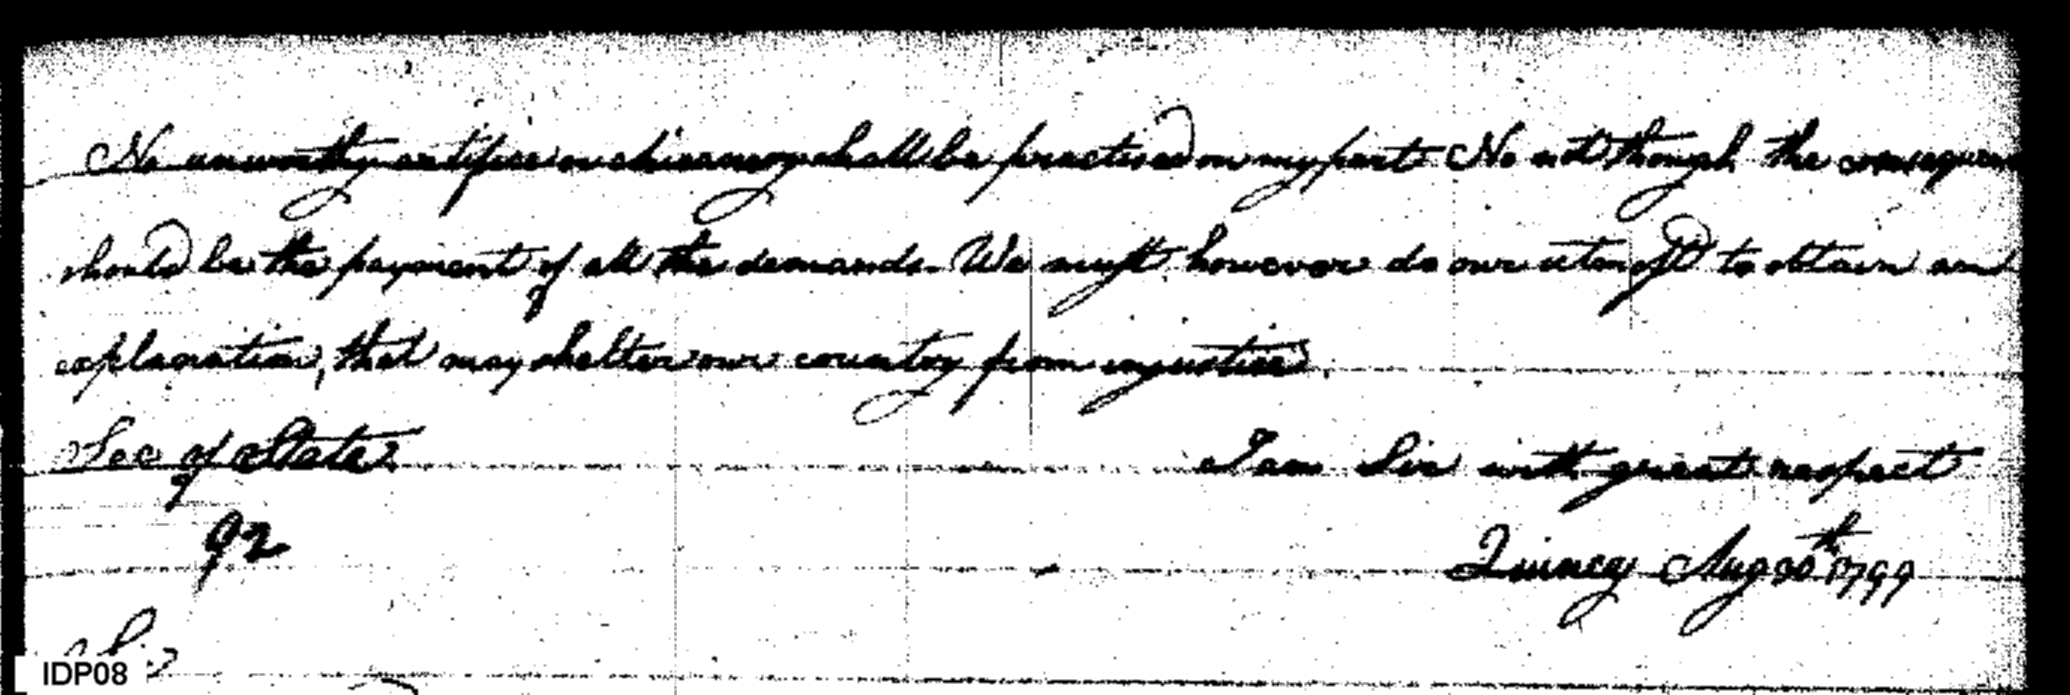 No unworthy artifice or chicanery shall be practised on my part No not though the consequen
should be the payment of all the demands. We must however do our utmost to obtain an
explanation, that may shelter our country from injustice
Sec of State I am Sir with great respect
92
Quincy Aug 30th 1799
Sir
IDP08